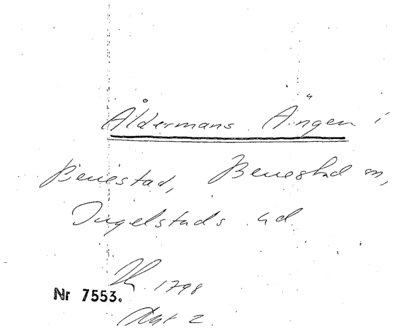 Åldermans Ängen i
Benestad, Benestad sn,
Ingelstads hd
1798
Nr 7553.
Akt 2